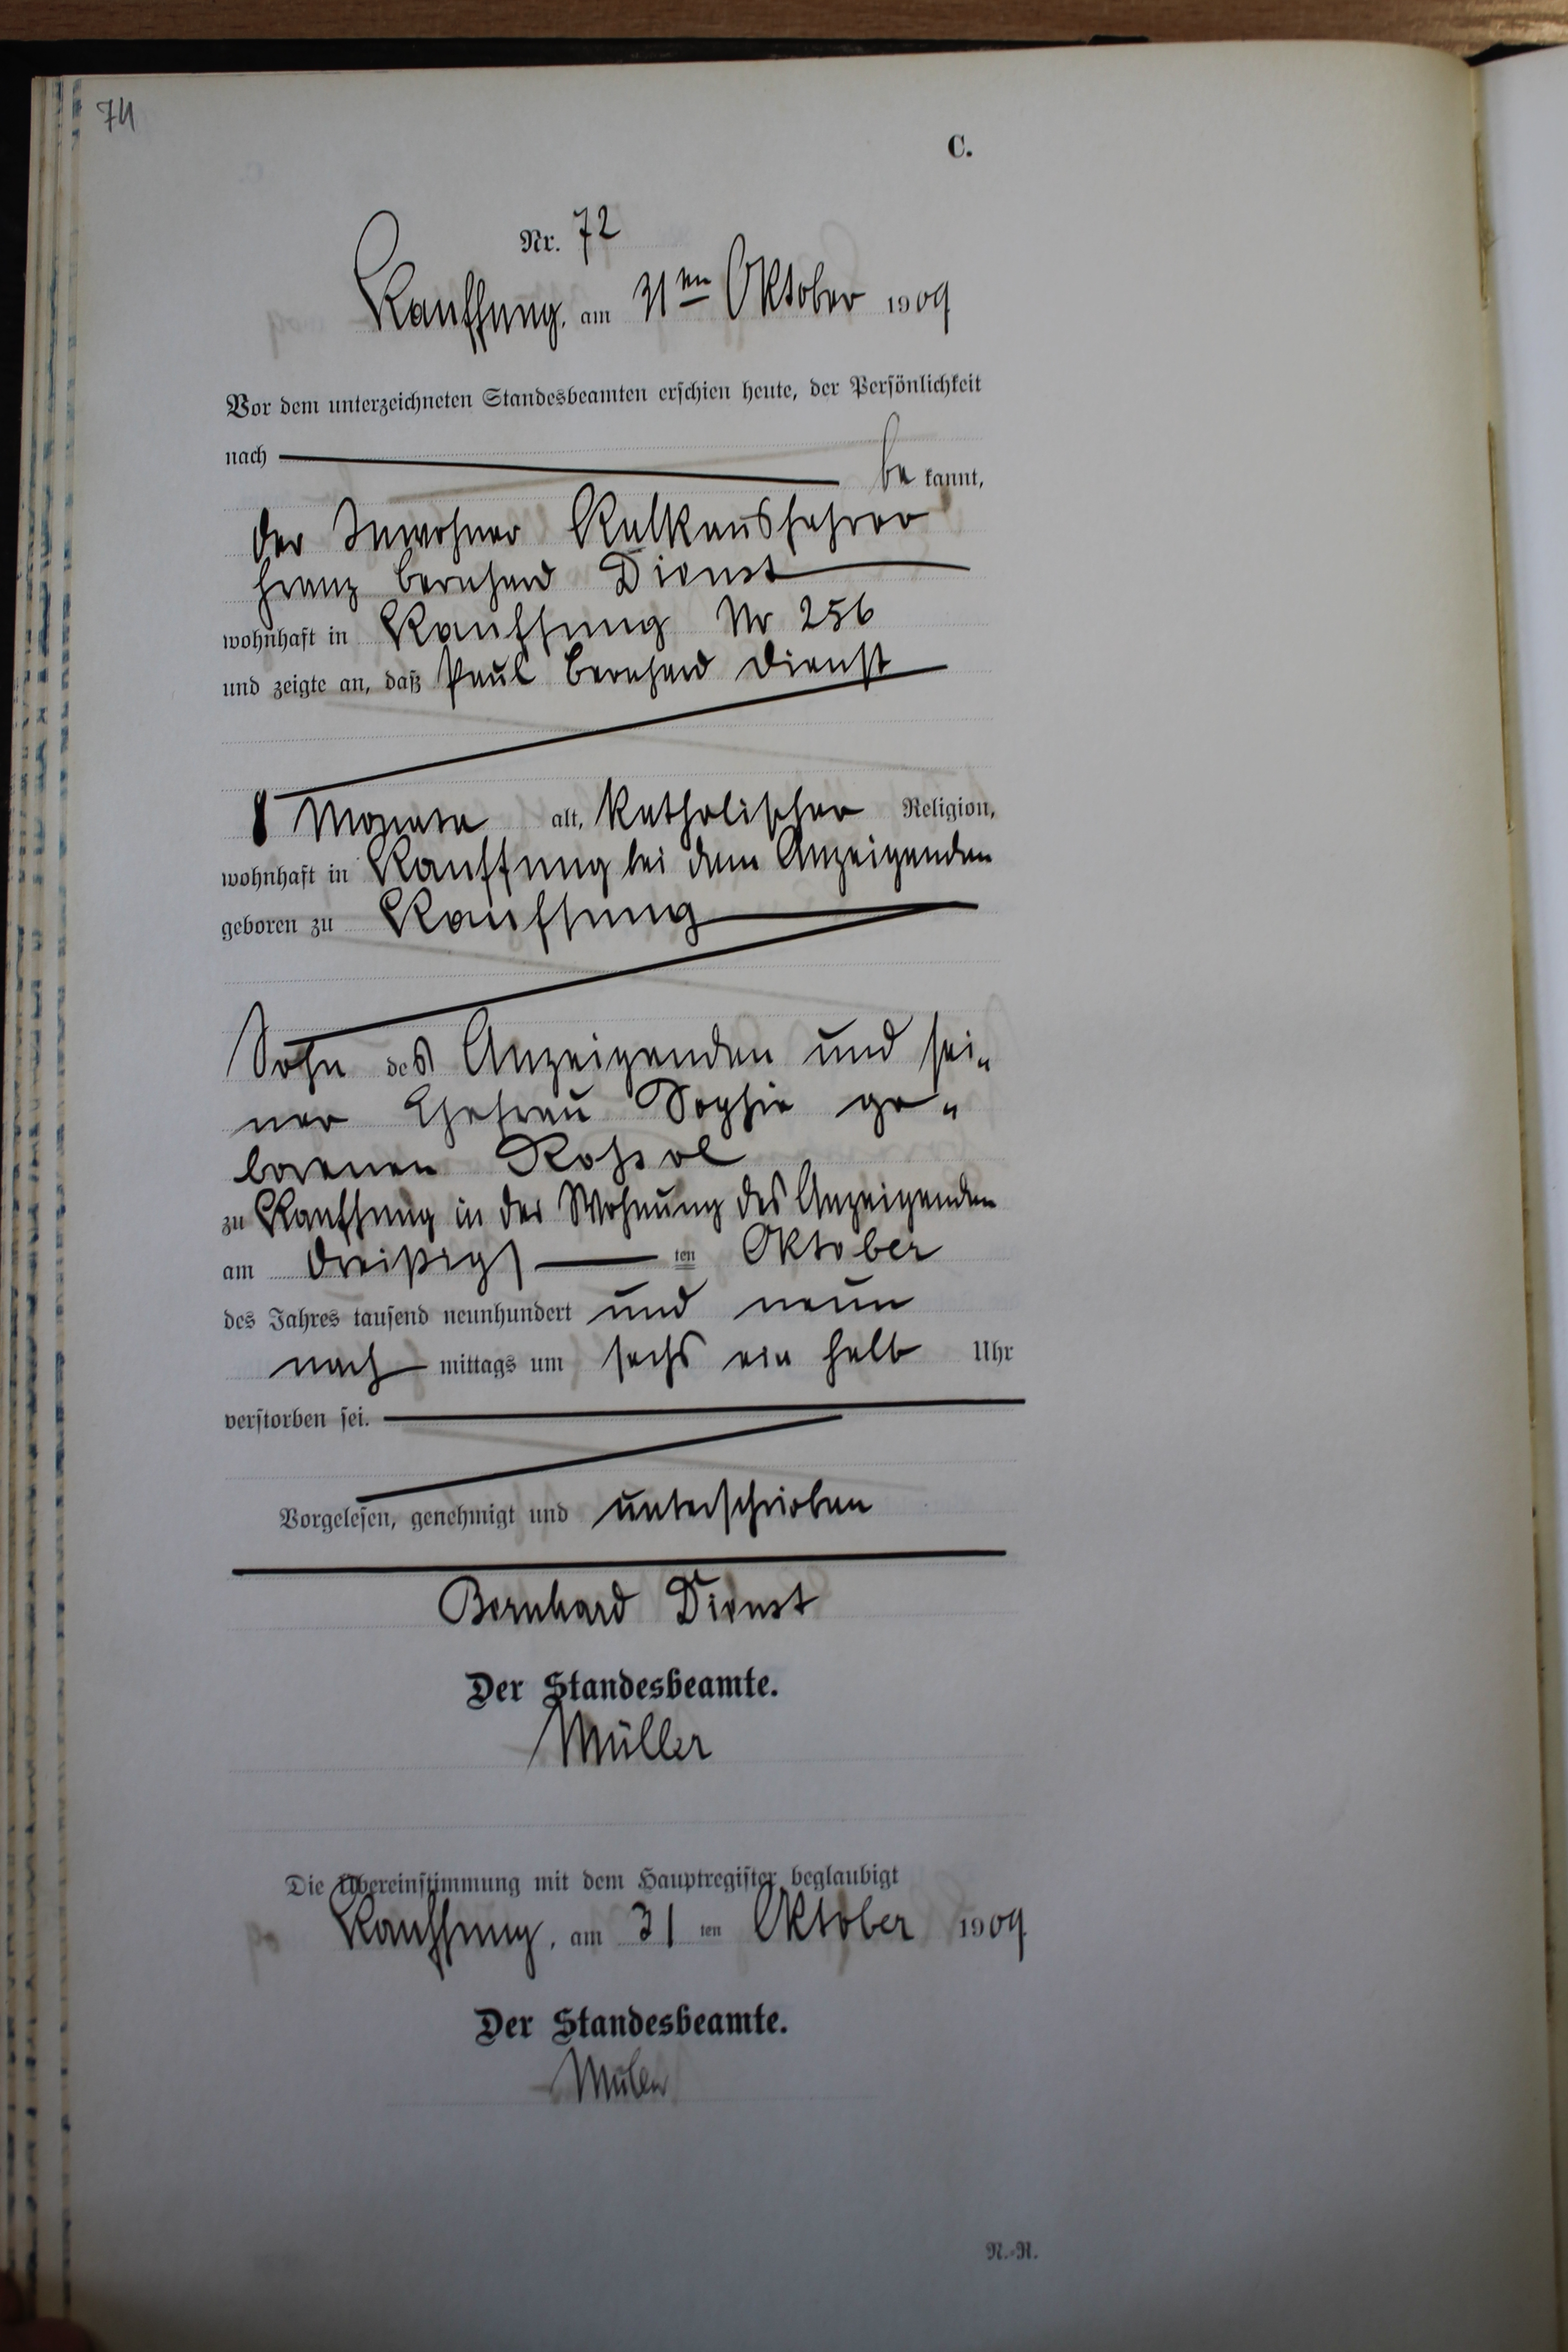 74
C.
Nr. 72
Kauffung, am 31ten Oktober 1909
Vor dem unterzeichneten Standesbeamten erschien heute, der Persönlichkeit
nach be kannt,
der Inwohner Kalkausfahrer
Franz Bernhard Dienst
wohnhaft in Kauffung Nr 256
und zeigte an, daß Paul Bernhard Dienst
8 Monate alt, katholischer Religion,
wohnhaft in Kauffung bei dem Anzeigenden
geboren zu Kauffung
Sohn des Anzeigenden und sei„
ner Ehefrau Sophie ge„
borenen
zu Kauffung in der Wohnung des Anzeigenden
am dreißigs ten Oktober
des Jahres tausend neunhundert und neun
nach mittags um sechs ein halb Uhr
verstorben sei.
Vorgelesen, genehmigt und unterschrieben
Bernhard Dienst
Der Standesbeamte.
Müller
Die Übereinstimmung mit dem Hauptregister beglaubigt
Kauffung, am 31 ten Oktober 1909
Der Standesbeamte.
Müller
N.-R.